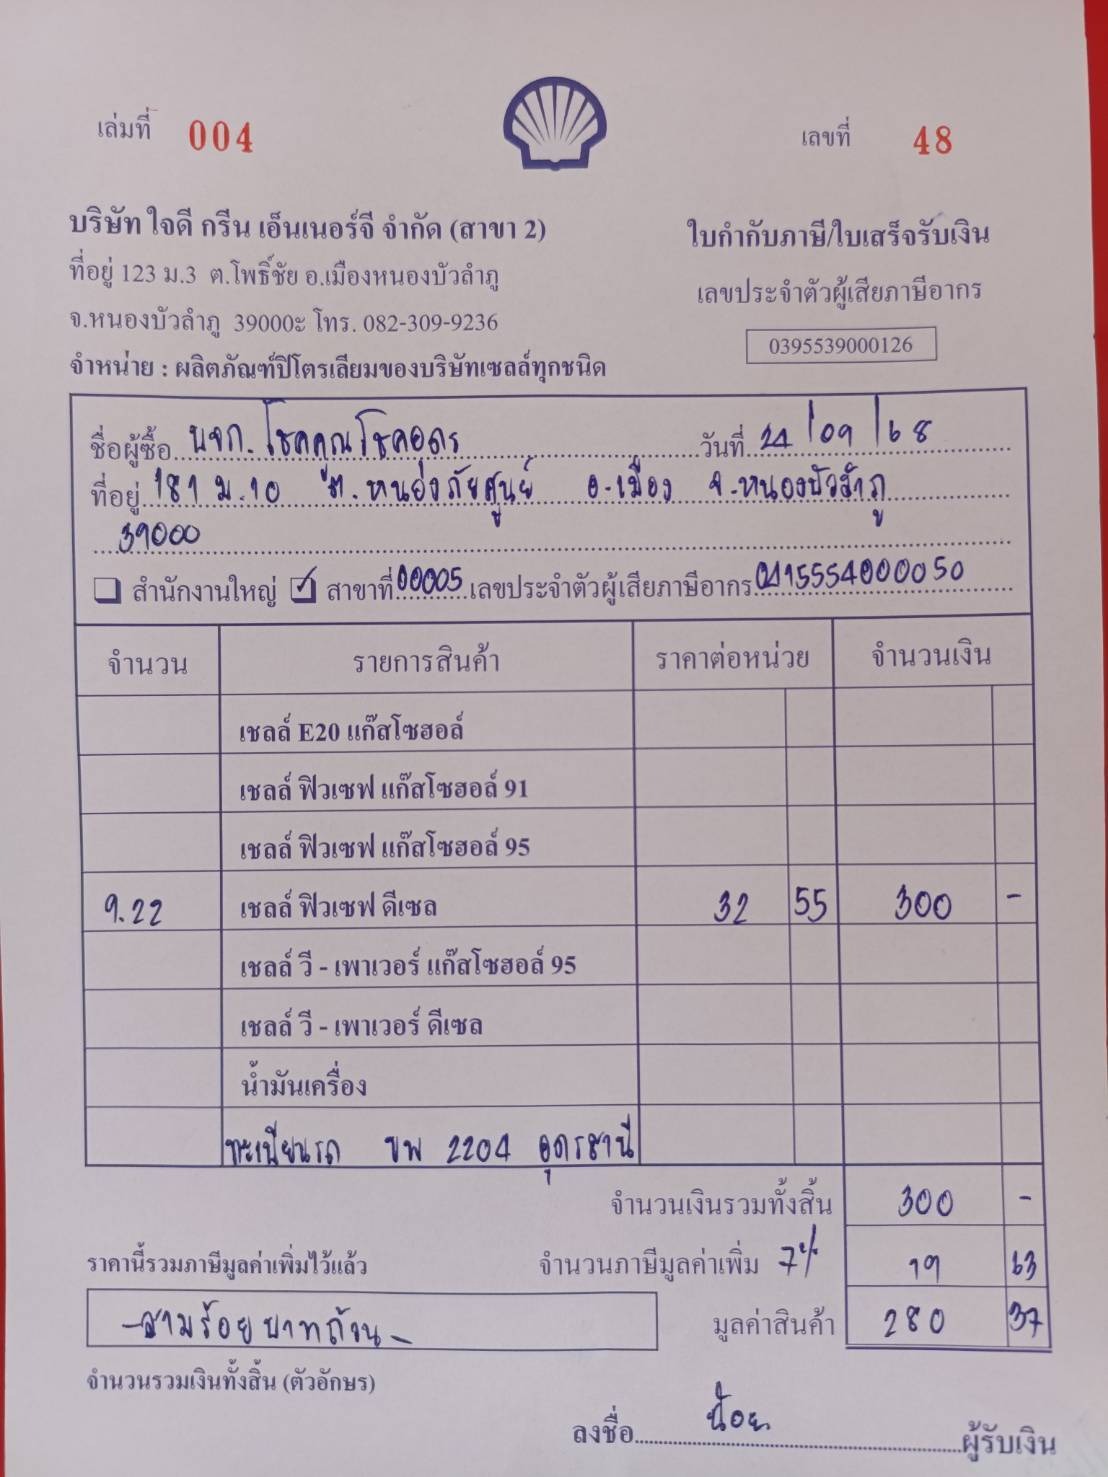 เล่มที่ 004
เลขที่ 48
บริษัท ใจดี กรีน เอ็นเนอร์จี จำกัด (สาขา 2)
ใบกำกับภาษี/ใบเสร็จรับเงิน
ที่อยู่ 123 ม.3 ต.โพธิ์ชัย อ.เมืองหนองบัวลำภู
เลขประจำตัวผู้เสียภาษีอากร
จ.หนองบัวลำภู 39000ะ โทร. 082-309-9236
0395539000126
จำหน่าย : ผลิตภัณฑ์ปิโตรเลียมของบริษัทเชลล์ทุกชนิด
ชื่อผู้ซื้อ หจก. โชคคูณโชคอุดร วันที่ 24/09/68
ที่อยู่ 181 ม.10 ต.หนองภัยศูนย์ อ.เมือง จ.หนองบัวลำภู
39000
สำนักงานใหญ่ ✓ สาขาที่ 00005 เลขประจำตัวผู้เสียภาษีอากร 0415554000050
จำนวน รายการสินค้า ราคาต่อหน่วย จำนวนเงิน
เชลล์ E20 แก๊สโซฮอล์
เชลล์ ฟิวเซฟ แก๊สโซฮอล์ 91
เชลล์ ฟิวเซฟ แก๊สโซฮอล์ 95
9.22 เชลล์ ฟิวเซฟ ดีเซล 32 55 300 -
เชลล์ วี - เพาเวอร์ แก๊สโซฮอล์ 95
เชลล์ วี - เพาเวอร์ ดีเซล
น้ำมันเครื่อง
ทะเบียนรถ ขพ 2204 อุดรธานี
จำนวนเงินรวมทั้งสิ้น 300 -
ราคานี้รวมภาษีมูลค่าเพิ่มไว้แล้ว จำนวนภาษีมูลค่าเพิ่ม 7% 19 63
-สามร้อยบาทถ้วน- มูลค่าสินค้า 280 37
จำนวนรวมเงินทั้งสิ้น (ตัวอักษร)
ลงชื่อ น้อย ผู้รับเงิน